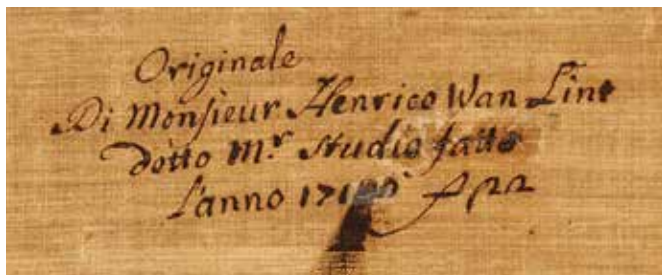 Originale
Di Monsieur Henrico Wan Lint
detto M.r Studio fatto
L'anno